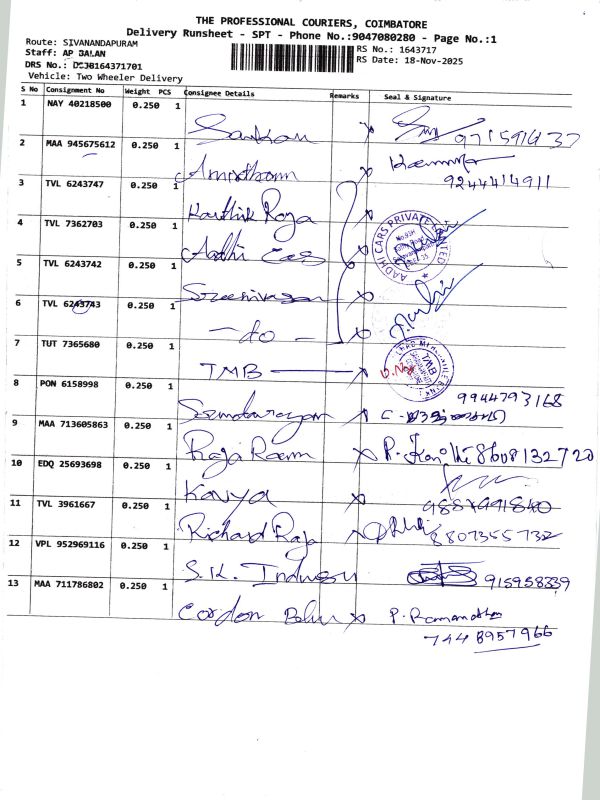 THE PROFESSIONAL COURIERS, COIMBATORE
Delivery Runsheet - SPT - Phone No.:9047080280 - Page No.:1
Route: SIVANANDAPURAM
RS No.: 1643717
Staff: AP BALAN
RS Date: 18-Nov-2025
DRS No.: DCJB164371701
Vehicle: Two Wheeler Delivery
S No Consignment No Weight PCS Consignee Details Remarks Seal & Signature
1 NAY 40218500 0.250 1
Sankar
2 MAA 945675612 0.250 1
9244414911
3 TVL 6243747 0.250 1
Karthik Raja
4 TVL 7362703 0.250 1
Aadhi Cas
AADHI CARS PRIVATE LIMITED
5 TVL 6243742 0.250 1
Sreenivasan
6 TVL 6243743 0.250 1
- do -
7 TUT 7365680 0.250 1
TMB
TMB
8 PON 6158998 0.250 1
9944793168
Sundararajan
9 MAA 713605863 0.250 1
Raja Raem P. 8608132720
10 EDQ 25693698 0.250 1
Kavya
11 TVL 3961667 0.250 1
Richard Raja 8807355732
12 VPL 952969116 0.250 1
S.K. 915958339
13 MAA 711786802 0.250 1
P. Ramanathan
7448957966